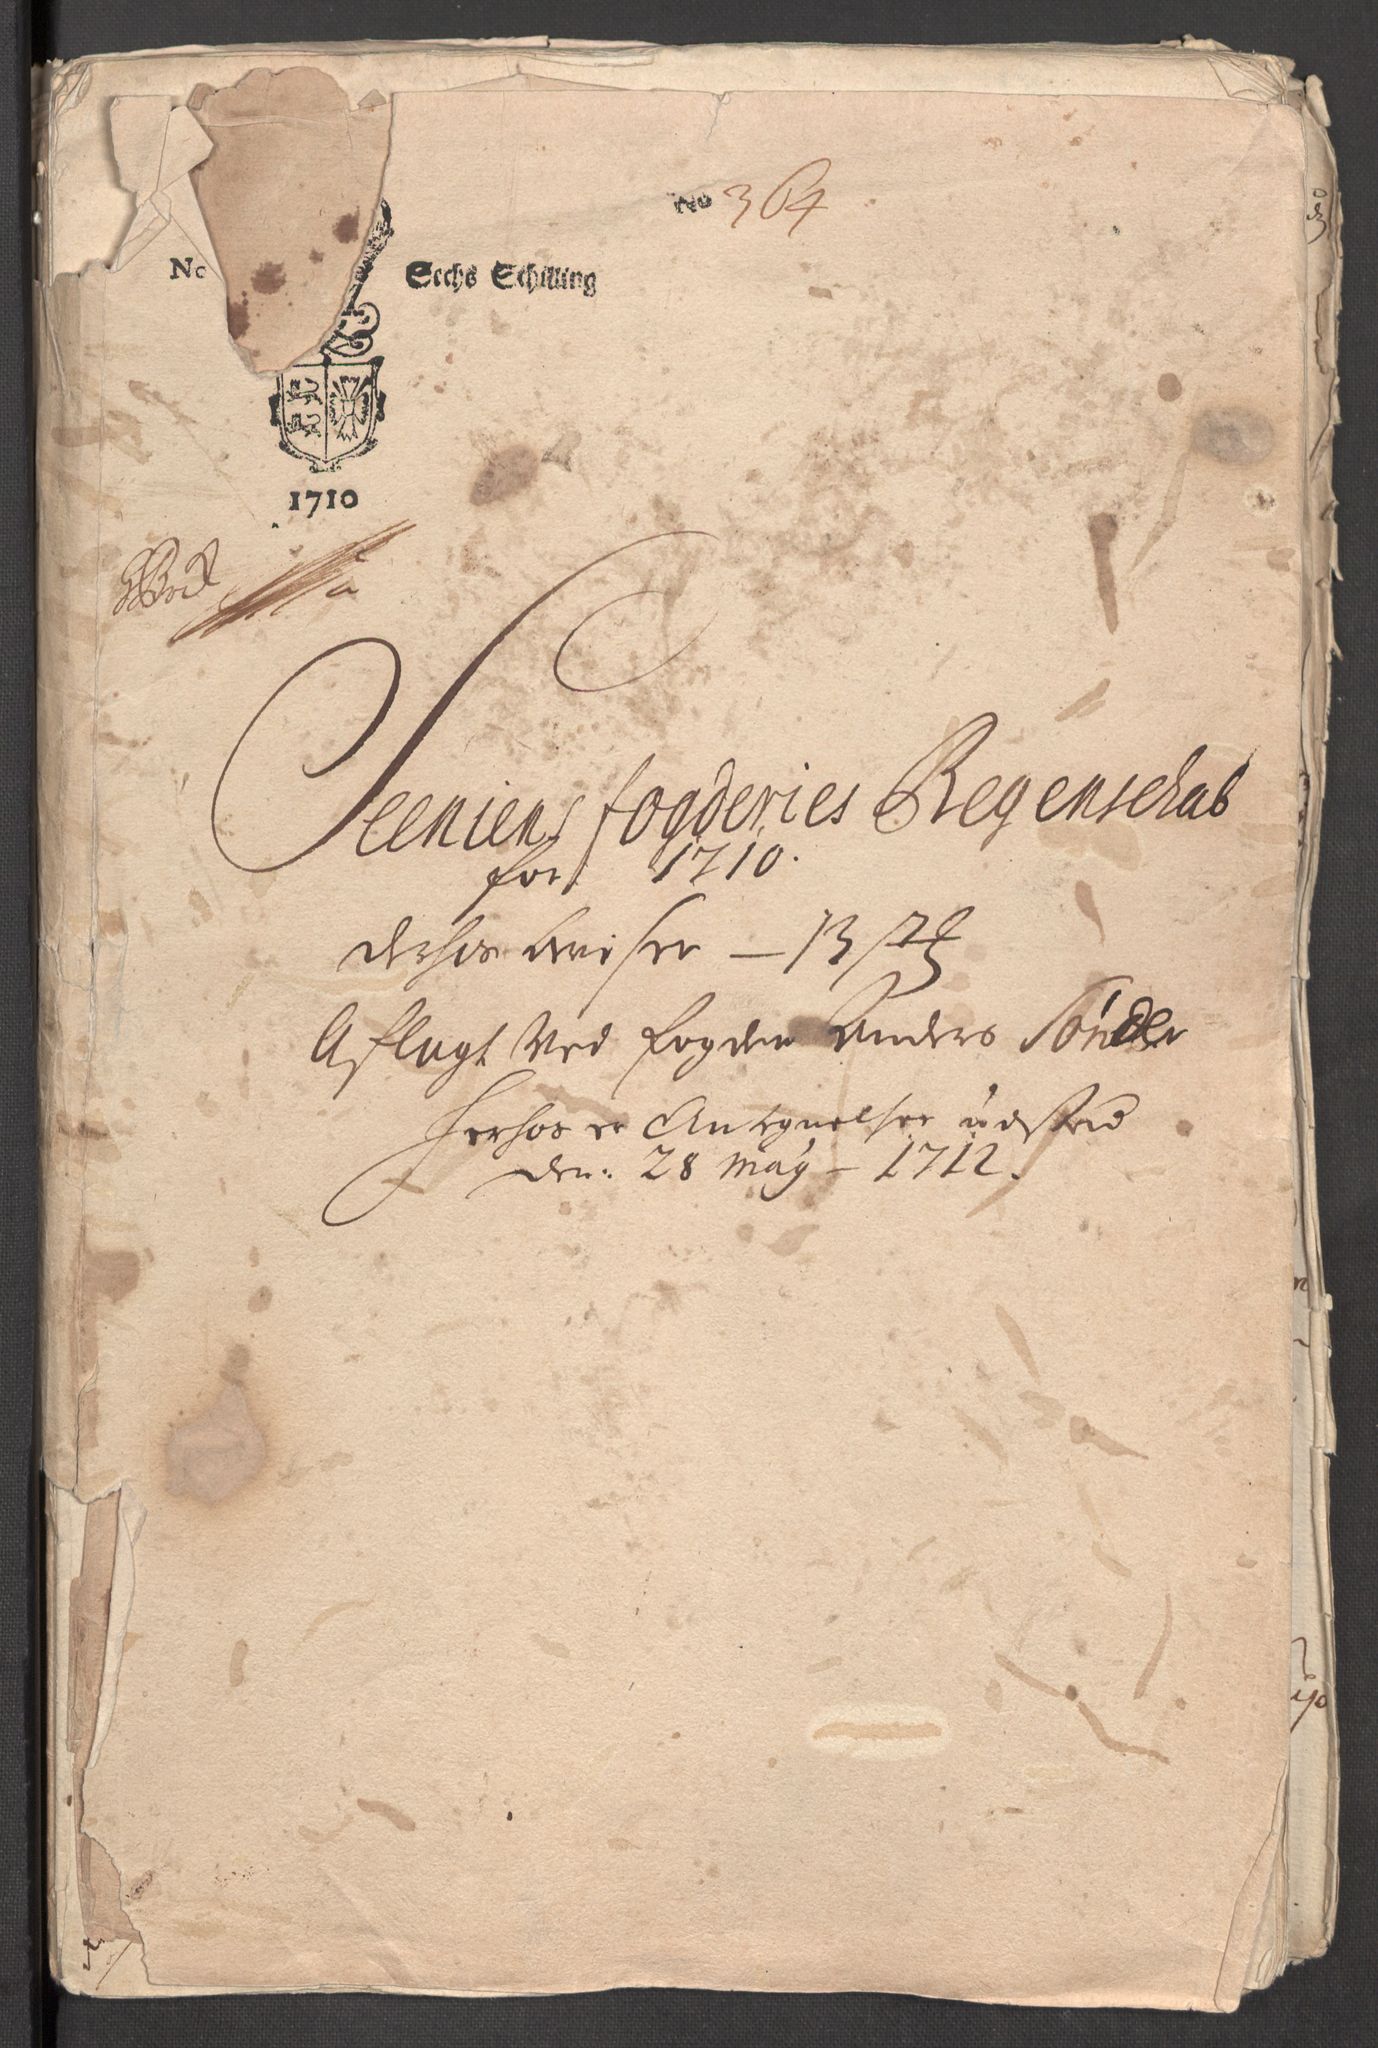 No 364
No
Sechs Schilling
1710
Seeniens fogderies Regenschab
for 1710.
derhos
Aflagt Ved fogden Anders Tönder
Herhos er Antegnelser üdsted
den: 28 Maÿ - 1712.